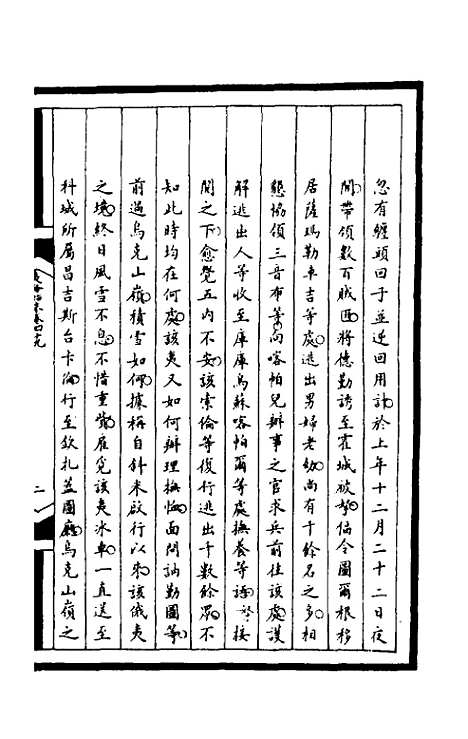 忽有纏頭回子並逆回用計於上年十二月二十二日夜
間帶領數百賊匪將德勤誘至霍城被拏偪令圖爾根移
居薩瑪勒車吉等處逃出男婦老幼尚有千餘名之多相
懇協領三音布等向喀帕兒辦事之官求兵前往該處護
解逃出人等收至庫庫烏蘇喀帕爾等處撫養等語接
閱之下愈覺五內不安該索倫等復行逃出千數餘眾不
知此時均在何處該夷又如何辦理撫恤面問訥勤圖等
前過烏克山嶺積雪如何據稱自斜米啟行以來該俄夷
之境終日風雪不息不惜重貲雇覓該夷冰車一直送至
科域所屬昌吉斯台卡倫行至欽札蓋圖廠烏克山嶺之
卷四九
二